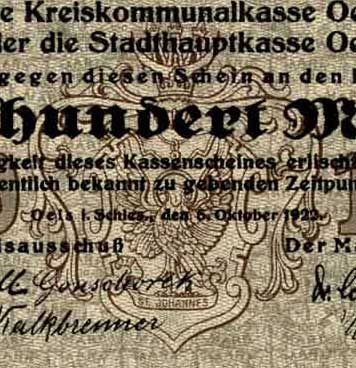 e Kreiskommunalkasse Oe
er die Stadthauptkasse Oe
gegen diesen Schein an den
hundert M
gkeit dieses Kassenscheines erlisch
entlich bekannt zu gebenden Zeitpun
Oels i. Schles., den 6. Oktober 1922.
sausschuß Der M
ST. JOHANNES
Kalkbrenner